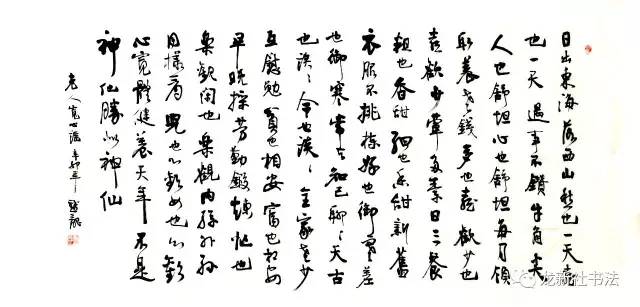 日出東海落西山愁也一天喜
也一天遇事不鑽牛角尖
人也舒坦心也舒坦每月領
取養老錢多也喜歡少也
喜歡少葷多素日三餐
粗也香甜細也香甜新舊
衣服不挑揀好也御寒差
也御寒常与知己聊〻天古
也淡〻今也淡〻全家老少
互慰勉貧也相安富也相安
早晚操勞勤鍛煉忙也
樂觀閑也樂觀內孫外孫
同樣看兒也心歡女也心歡
心寬體健養天年不是
神仙勝似神仙
老人寬心謠辛卯年
龙新社书法